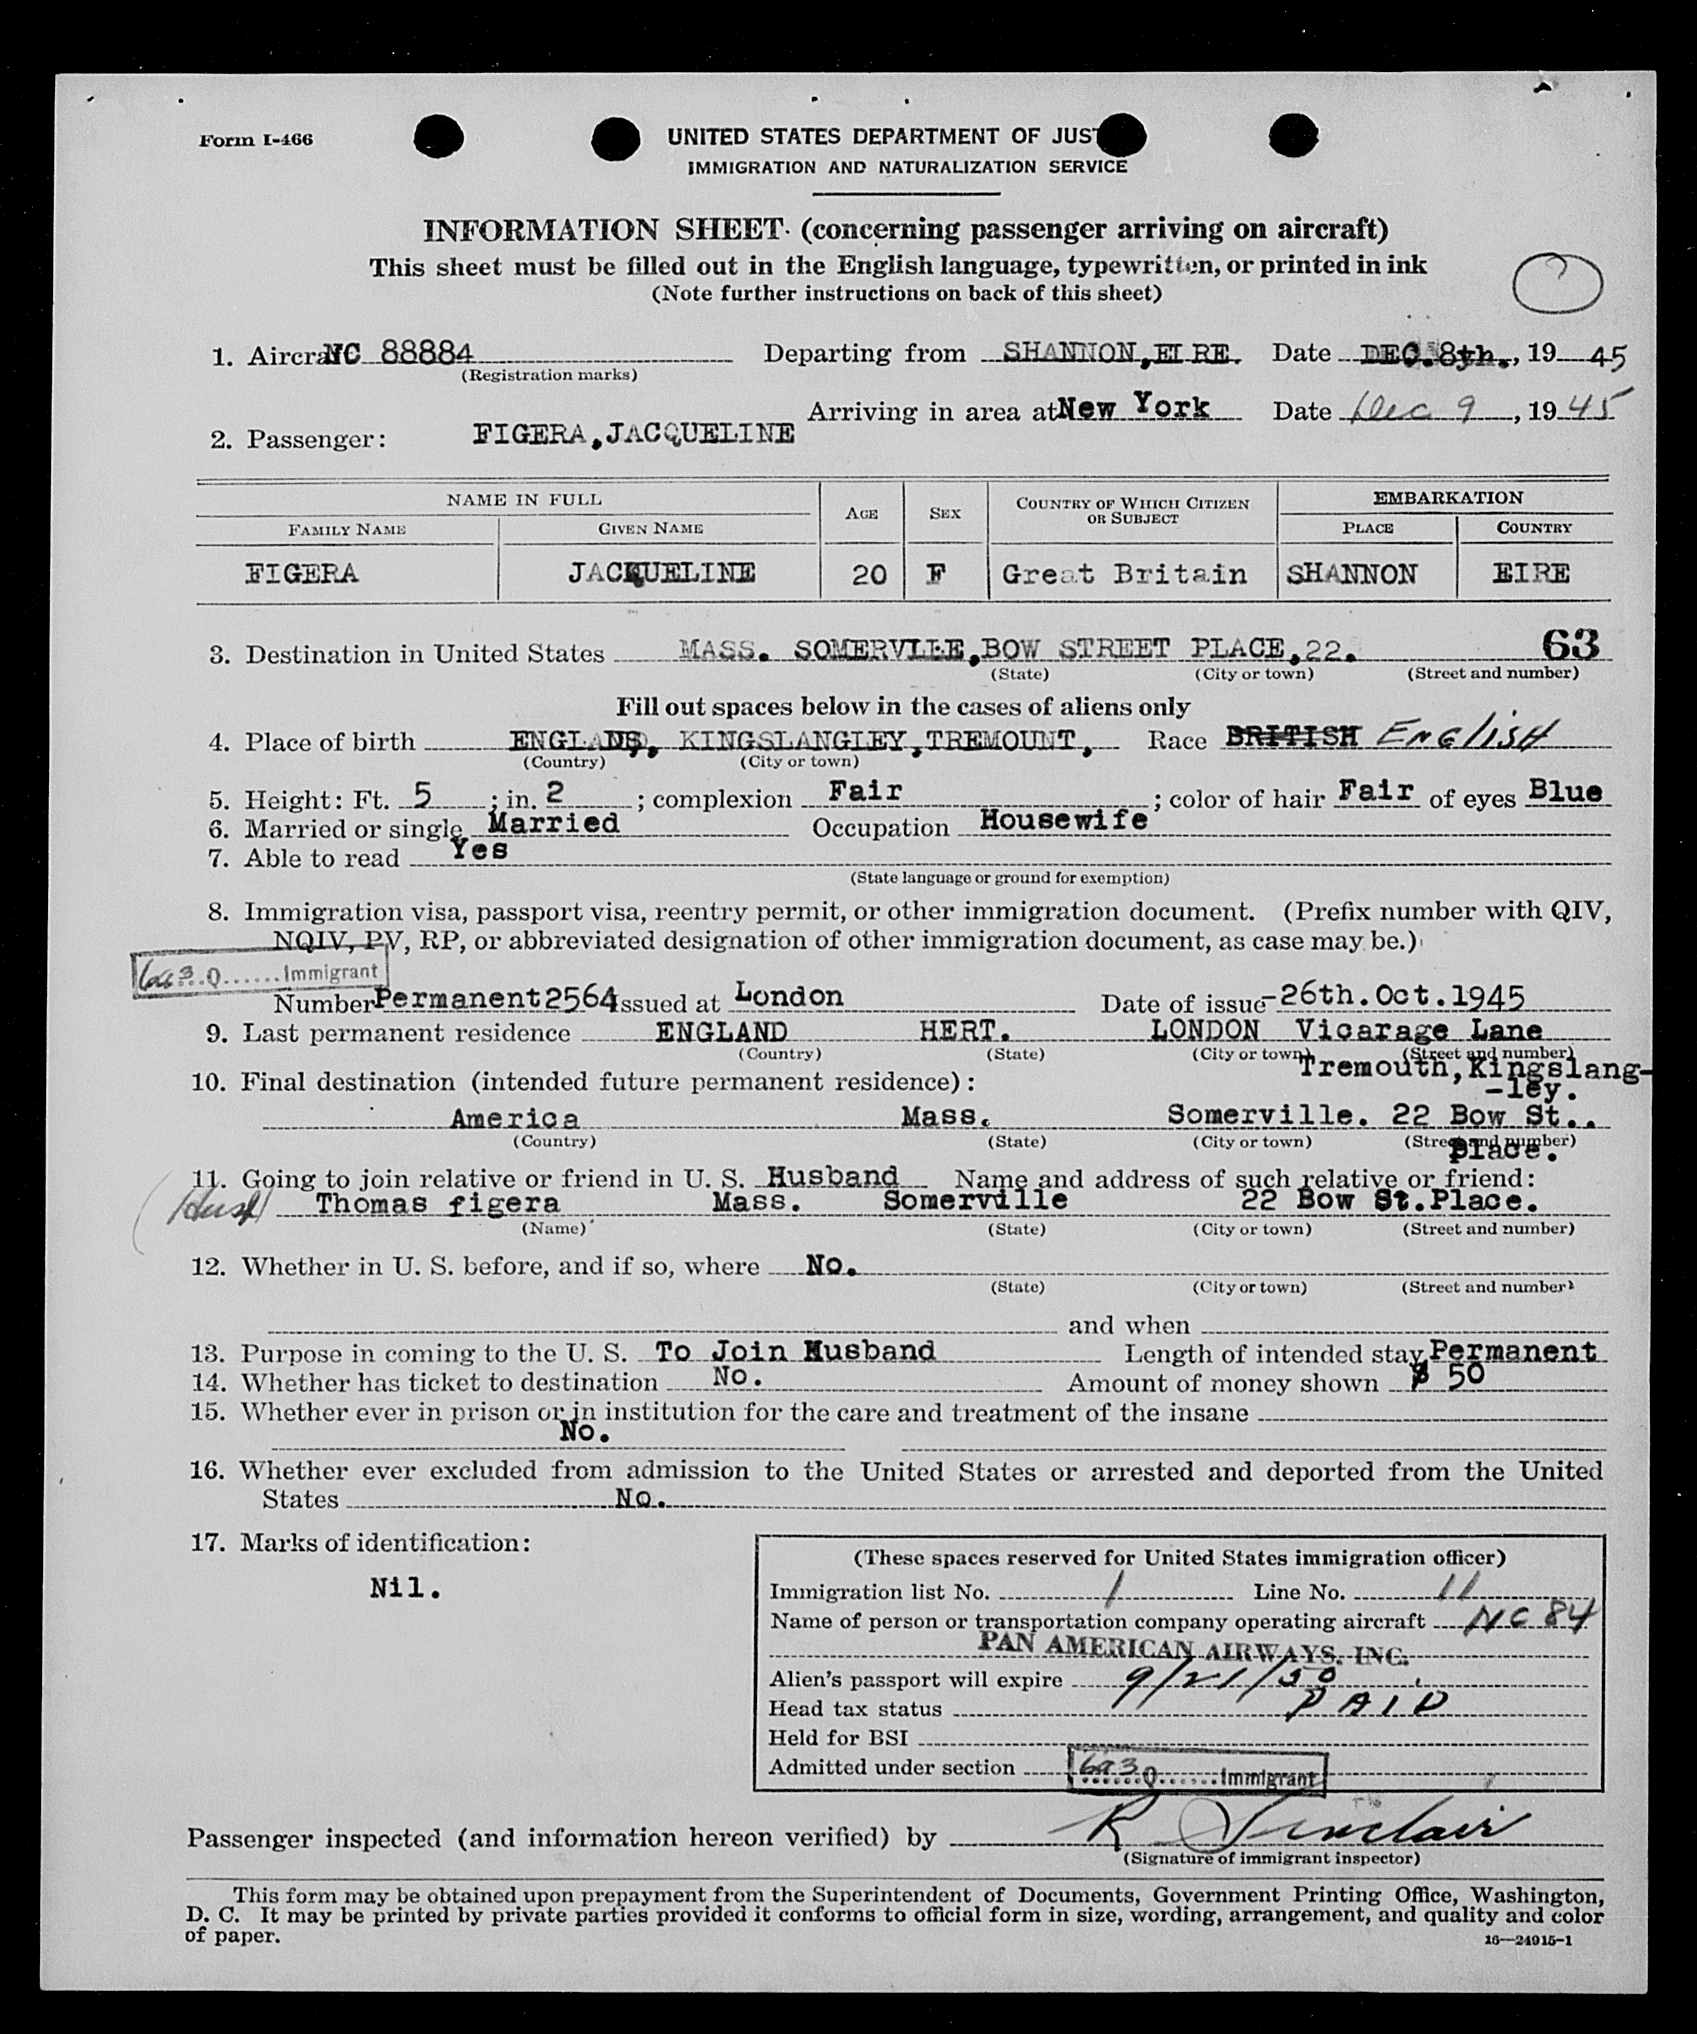 Form I-466
UNITED STATES DEPARTMENT OF JUST
IMMIGRATION AND NATURALIZATION SERVICE
INFORMATION SHEET (concerning passenger arriving on aircraft)
This sheet must be filled out in the English language, typewritten, or printed in ink
(Note further instructions on back of this sheet)
1. Aircraft NC 88884 Departing from SHANNON, EIRE. Date DEC. 8th., 19 45
(Registration marks)
Arriving in area at New York Date Dec 9, 19 45
2. Passenger: FIGERA, JACQUELINE
NAME IN FULL AGE SEX COUNTRY OF WHICH CITIZEN OR SUBJECT EMBARKATION
FAMILY NAME GIVEN NAME PLACE COUNTRY
FIGERA JACQUELINE 20 F Great Britain SHANNON EIRE
63
3. Destination in United States MASS. SOMERVLLE, BOW STREET PLACE, 22.
(State) (City or town) (Street and number)
Fill out spaces below in the cases of aliens only
4. Place of birth ENGLAND, KINGSLANGLEY, TREMOUNT, Race BRITISH ENGlisH
(Country) (City or town)
5. Height: Ft. 5; in. 2; complexion Fair; color of hair Fair of eyes Blue
6. Married or single Married Occupation Housewife
7. Able to read Yes
(State language or ground for exemption)
8. Immigration visa, passport visa, reentry permit, or other immigration document. (Prefix number with QIV,
NQIV, PV, RP, or abbreviated designation of other immigration document, as case may be.)
6a3 Q......Immigrant
Number Permanent 2564 issued at London Date of issue 26th. Oct. 1945
9. Last permanent residence ENGLAND HERT. LONDON Vicarage Lane
(Country) (State) (City or town) (Street and number)
Tremouth, Kingslang-
-ley.
10. Final destination (intended future permanent residence):
America Mass. Somerville. 22 Bow St..
(Country) (State) (City or town) (Street and number)
place.
11. Going to join relative or friend in U. S. Husband Name and address of such relative or friend:
Husb Thomas figera Mass. Somerville 22 Bow St. Place.
(Name) (State) (City or town) (Street and number)
12. Whether in U. S. before, and if so, where No.
(State) (City or town) (Street and number)
and when
13. Purpose in coming to the U. S. To Join Husband Length of intended stay Permanent
14. Whether has ticket to destination No. Amount of money shown $ 50
15. Whether ever in prison or in institution for the care and treatment of the insane
No.
16. Whether ever excluded from admission to the United States or arrested and deported from the United
States No.
17. Marks of identification:
Nil.
(These spaces reserved for United States immigration officer)
Immigration list No. 1 Line No. 11
Name of person or transportation company operating aircraft NC 84
PAN AMERICAN AIRWAYS, INC.
Alien's passport will expire 9/21/50
Head tax status PAID
Held for BSI
Admitted under section 6a3 Q......Immigrant
Passenger inspected (and information hereon verified) by R Sinclair
(Signature of immigrant inspector)
This form may be obtained upon prepayment from the Superintendent of Documents, Government Printing Office, Washington,
D. C. It may be printed by private parties provided it conforms to official form in size, wording, arrangement, and quality and color
of paper.
16—24915-1